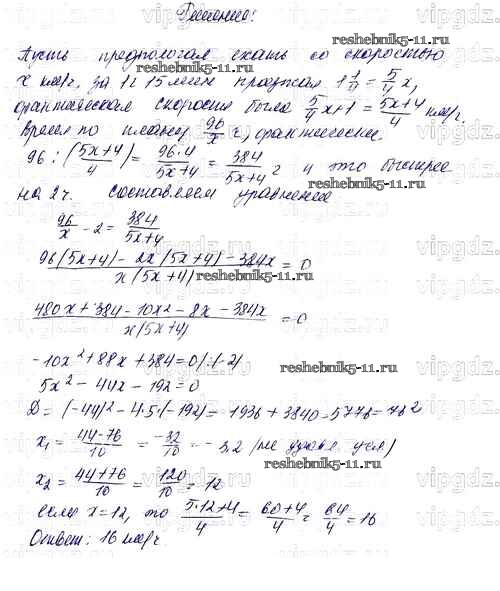 Решение:
Пусть предполагал ехать со скоростью
x км/ч, за 1ч 15 мин проезжал 1 1/4 = 5/4 x,
фактическая скорость была 5/4 x+1 = (5x+4)/4 км/ч.
Время по плану 96/x ч, фактически
96 : ((5x+4)/4) = (96·4)/(5x+4) = 384/(5x+4) ч и это быстрее
на 2ч. Составляем уравнение
96/x - 2 = 384/(5x+4)
(96(5x+4) - 2x(5x+4) - 384x)/(x(5x+4)) = 0
(480x + 384 - 10x² - 8x - 384x)/(x(5x+4)) = 0
-10x² + 88x + 384 = 0 /:(-2)
5x² - 44x - 192 = 0
D = (-44)² - 4·5·(-192) = 1936 + 3840 = 5776 = 76²
x₁ = (44-76)/10 = -32/10 = -3,2 (не удовл. усл)
x₂ = (44+76)/10 = 120/10 = 12
если x=12, то (5·12+4)/4 = (60+4)/4 = 64/4 = 16
Ответ: 16 км/ч.
vipgdz.ru
reshebnik5-11.ru